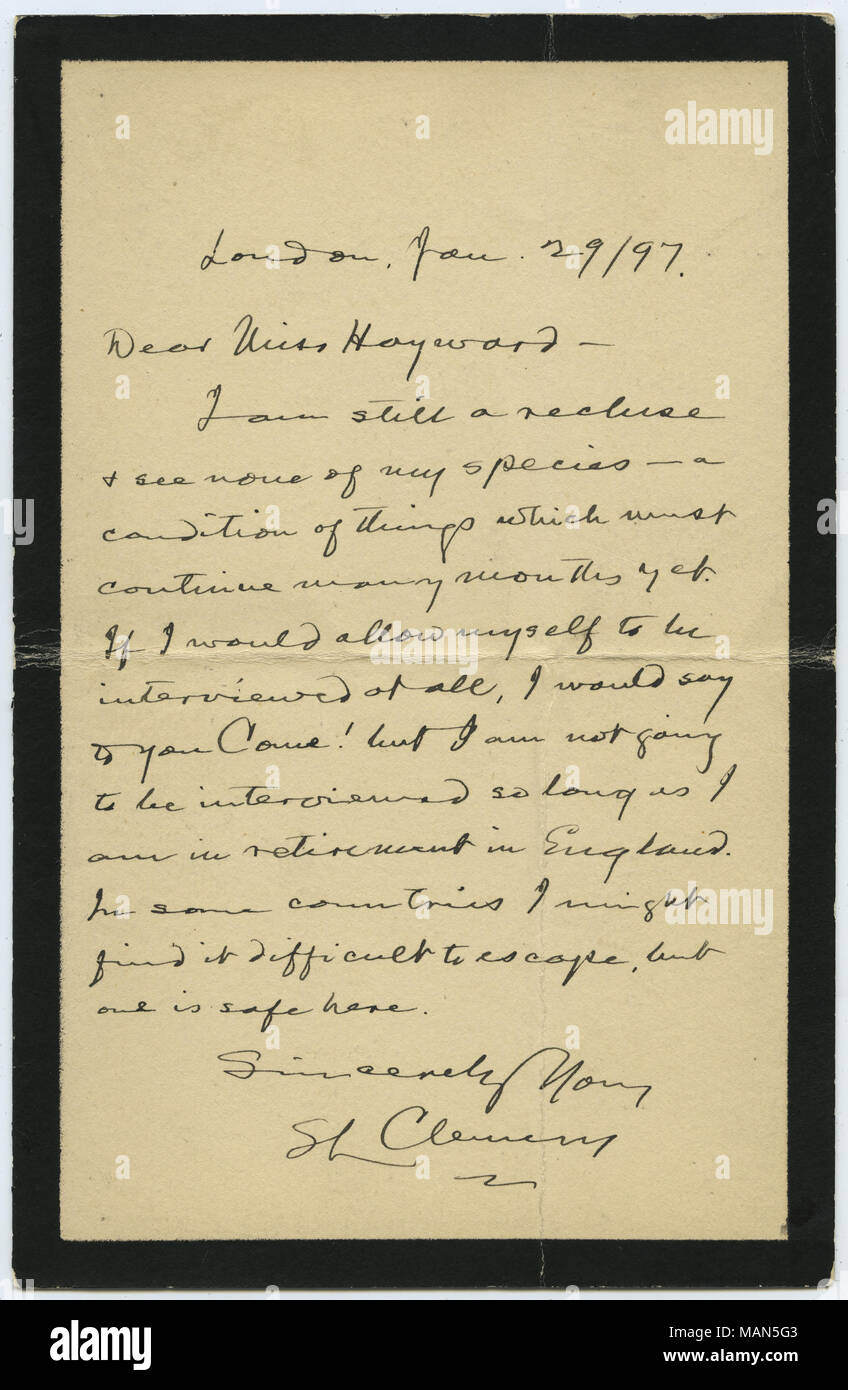 London, Jan. 29/97.
Dear Miss Hayward —
I am still a recluse
& see none of my species — a
condition of things which must
continue many months yet.
If I would allow myself to be
interviewed at all, I would say
to you Come! but I am not going
to be interviewed so long as I
am in retirement in England.
In some countries I might
find it difficult to escape, but
one is safe here.
Sincerely Yours
SL Clemens
alamy
alamy
a
alamy
Image ID: MAN5G3
www.alamy.com